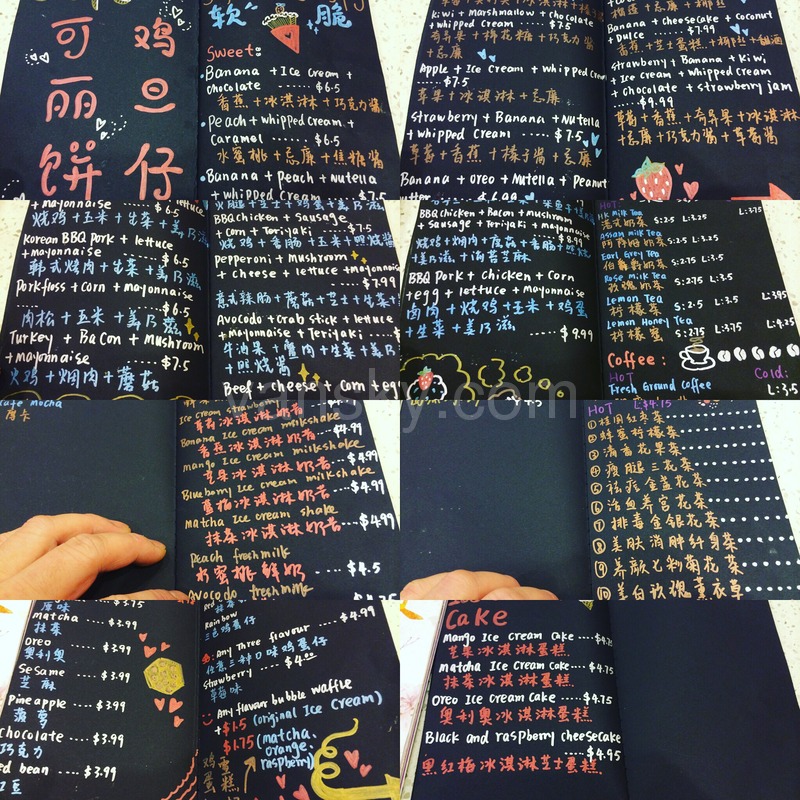 软 脆
可 鸡
丽 旦
饼 仔
Sweet:
Banana + Ice cream +
Chocolate ---- $6.5
香蕉 + 冰淇淋 + 巧克力酱
Peach + whipped cream +
Caramel ---- $6.5
水蜜桃 + 忌廉 + 焦糖酱
Banana + Peach + Nutella
+ whipped Cream ---- $7.5
Kiwi + marshmallow + chocolate
+ whipped cream ---- $7.5
奇异果 + 棉花糖 + 巧克力酱
+ 忌廉
Apple + Ice cream + whipped Cream
---- $7.5
苹果 + 冰淇淋 + 忌廉
Strawberry + Banana + Nutella
+ whipped Cream ---- $7.5
草莓 + 香蕉 + 榛子酱 + 忌廉
Banana + oreo + Nutella + Peanut
Banana + cheesecake + coconut
Dulce ---- $7.99
Strawberry + Banana + Kiwi
+ Ice cream + whipped cream
+ chocolate + strawberry jam
---- $9.99
草莓 + 香蕉 + 奇异果 + 冰淇淋
+ 忌廉 + 巧克力酱 + 草莓酱
+ mayonnaise ---- $6.5
烧鸡 + 玉米 + 生菜 + 美乃滋
Korean BBQ Pork + lettuce
+ mayonnaise ---- $6.5
韩式烤肉 + 生菜 + 美乃滋
Porkfloss + corn + mayonnaise
---- $6.5
肉松 + 玉米 + 美乃滋
Turkey + Bacon + Mushroom
+ mayonnaise ---- $7.5
火鸡 + 烟肉 + 蘑菇
BBQ chicken + Sausage
+ Corn + Teriyaki ---- $7.5
烧鸡 + 香肠 + 玉米 + 照烧酱
Pepperoni + Mushroom
+ cheese + lettuce + mayonnaise
---- $7.99
意式辣肠 + 蘑菇 + 芝士 + 生菜
Avocado + Crab stick + lettuce
+ Mayonnaise + Teriyaki
牛油果 + 蟹肉 + 生菜 + 美乃
+ 照烧酱
Beef + cheese + corn + eg
BBQ chicken + Bacon + mushroom
+ Sausage + Teriyaki + mayonnaise
---- $8.99
烧鸡 + 烟肉 + 蘑菇 + 香肠 + 照烧
+ 美乃滋
BBQ Pork + chicken + corn
+ egg + lettuce + mayonnaise
肉肉 + 烧鸡 + 玉米 + 鸡蛋
+ 生菜 + 美乃滋 ---- $9.99
HOT:
HK Milk Tea S:2.5 L:3.25 L:3.75
港式奶茶
Assam milk Tea S:2.5 L:3.25
阿萨姆奶茶
Earl Grey Tea S:2.75 L:3.5
伯爵奶茶
Rose Milk Tea S:2.75 L:3.5
玫瑰奶茶
Lemon Tea S:2.5 L:3.5 L:3.95
柠檬茶
Lemon Honey Tea S:2.75 L:3.75 L:4.25
柠檬蜜
Coffee:
HOT Cold:
Fresh Ground Coffee L:3.5
vansky.com
Cafe Mocha
摩卡
Ice cream strawberry
草莓冰淇淋奶昔 ---- $4.99
Banana Ice cream milkshake
香蕉冰淇淋奶昔 ---- $4.99
mango Ice cream milkshake
芒果冰淇淋奶昔 ---- $4.99
Blueberry Ice cream milkshake
蓝莓冰淇淋奶昔 ---- $4.99
Matcha Ice cream shake
抹茶冰淇淋奶昔 ---- $4.99
Peach fresh milk
水蜜桃鲜奶 ---- $4.5
Avocado fresh milk
HOT L:$4.75
① 桂圆红枣茶
② 蜂蜜柠檬茶
③ 清香花果茶
④ 瘦腿三花茶
⑤ 祛痘金盏花茶
⑥ 活血养宫花茶
⑦ 排毒金银花茶
⑧ 美肤消脂纤身茶
⑨ 养颜七彩菊花茶
⑩ 美白玫瑰薰衣草
原味 ---- $3.75
Matcha ---- $3.99
抹茶
Oreo ---- $3.99
奥利奥
Sesame ---- $3.99
芝麻
Pineapple ---- $3.99
菠萝
Chocolate ---- $3.99
巧克力
ed bean ---- $3.99
红豆
Rainbow ---- $4.99
三色鸡蛋仔
Any Three flavour ---- $4.99
任意三种口味鸡蛋仔
Strawberry ---- $4.00
草莓味
Any flavour bubble waffle
+ $1.5 (original Ice Cream)
+ $1.75 (matcha,
orange,
raspberry)
鸡蛋
蛋糕
Cake
Mango Ice cream cake ---- $4.75
芒果冰淇淋蛋糕
Matcha Ice cream Cake ---- $4.75
抹茶冰淇淋蛋糕
Oreo Ice cream Cake ---- $4.75
奥利奥冰淇淋蛋糕
Black and raspberry cheesecake
---- $4.95
黑红梅冰淇淋芝士蛋糕